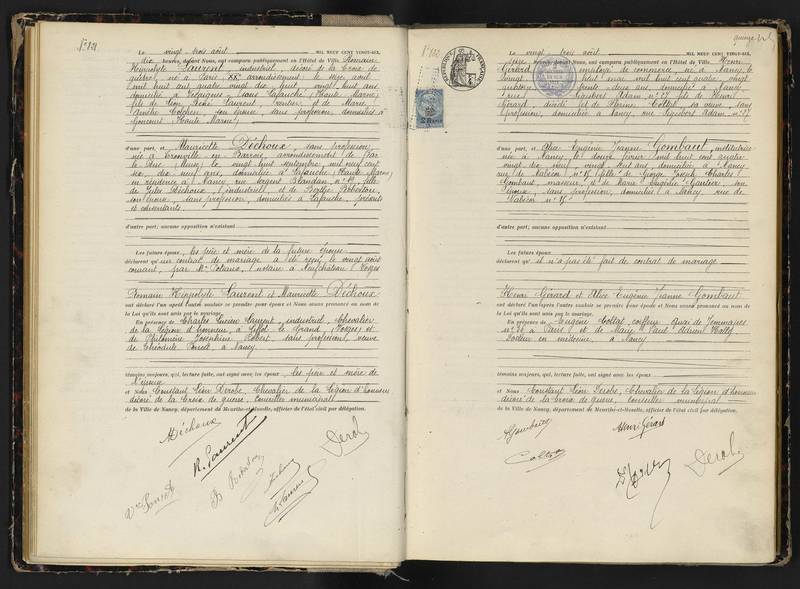 N° 121
Le vingt-trois août MIL NEUF CENT VINGT-SIX,
dix heures, devant Nous, ont comparu publiquement en l'Hôtel de Ville, Romain
Hippolyte Laurent, industriel, décoré de la Croix de
guerre, né à Paris XX° arrondissement le seize août
mil huit cent quatre vingt dix huit, vingt-huit ans,
domicilié à Lafauche (Haute Marne)
fils de Léon René Laurent, rentier, et de Marie
son épouse, sans profession, domiciliés à
Goncourt (Haute Marne)
d'une part, et Mauricette Déchoux, sans profession,
née à Tronville en Barrois, arrondissement de Bar
le Duc (Meuse) le vingt huit septembre mil neuf cent
six, dix neuf ans, domiciliée à Lafauche (Haute Marne)
en résidence à Nancy, rue Sergent Blandan n° fille
de Jules Déchoux, industriel, et de Berthe
son épouse, sans profession, domiciliés à Lafauche, présents
et consentants.
d'autre part; aucune opposition n'existant
Les futurs époux, les père et mère de la future épouse
déclarent qu'un contrat de mariage a été reçu le vingt août
courant, par Me notaire à Neufchâteau (Vosges)
Romain Hippolyte Laurent et Mauricette Déchoux
ont déclaré l'un après l'autre vouloir se prendre pour époux et Nous avons prononcé au nom de
la Loi qu'ils sont unis par le mariage.
En présence de Charles Lucien Laurent, industriel, Chevalier
de la Légion d'honneur, à Liffol le Grand (Vosges) et
de Philomène Joséphine Robert, sans profession, veuve
de Théodule à Nancy.
témoins majeurs, qui, lecture faite, ont signé avec les époux, les père et mère de
l'épouse
et Nous Constant Léon Derobe, Chevalier de la Légion d'honneur
décoré de la Croix de guerre, Conseiller municipal
de la Ville de Nancy, département de Meurthe-et-Moselle, officier de l'état civil par délégation.
MDéchoux
R. Laurent
Derobe
N° 122
RÉPUBLIQUE FRANÇAISE
Le vingt-trois août MIL NEUF CENT VINGT-SIX,
heures, devant Nous, ont comparu publiquement en l'Hôtel de Ville, Henri
Gérard, employé de commerce, né à Nancy, le
vingt mai mil huit cent quatre vingt
quatorze, trente deux ans, domicilié à Nancy,
rue Sigisbert Adam n° 27, fils de Henri
Gérard, décédé, et de Collot, sa veuve, sans
profession, domiciliée à Nancy rue Sigisbert Adam n° 27
d'une part, et Alice Eugénie Jeanne Gombaut, institutrice
née à Nancy, le douze février mil huit cent quatre
vingt dix neuf, vingt sept ans, domiciliée à Nancy
rue de n° 15, fille de George Joseph Charles
Gombaut, masseur, et de Marie Eugénie Gautier, son
épouse, sans profession, domiciliés à Nancy, rue de
n° 15.
d'autre part; aucune opposition n'existant
Les futurs époux
déclarent qu'il n'a pas été fait de contrat de mariage
Henri Gérard et Alice Eugénie Jeanne Gombaut
ont déclaré l'un après l'autre vouloir se prendre pour époux et Nous avons prononcé au nom de
la Loi qu'ils sont unis par le mariage.
En présence de Eugène Collot, coiffeur, Quai de Jemmapes
n° à Paris, et de Marie Paul Adrien
Docteur en médecine, à Nancy
témoins majeurs, qui, lecture faite, ont signé avec les époux
et Nous Constant Léon Derobe, Chevalier de la Légion d'honneur
décoré de la Croix de guerre, Conseiller municipal
de la Ville de Nancy, département de Meurthe-et-Moselle, officier de l'état civil par délégation.
Henri Gérard
Collot
Derobe